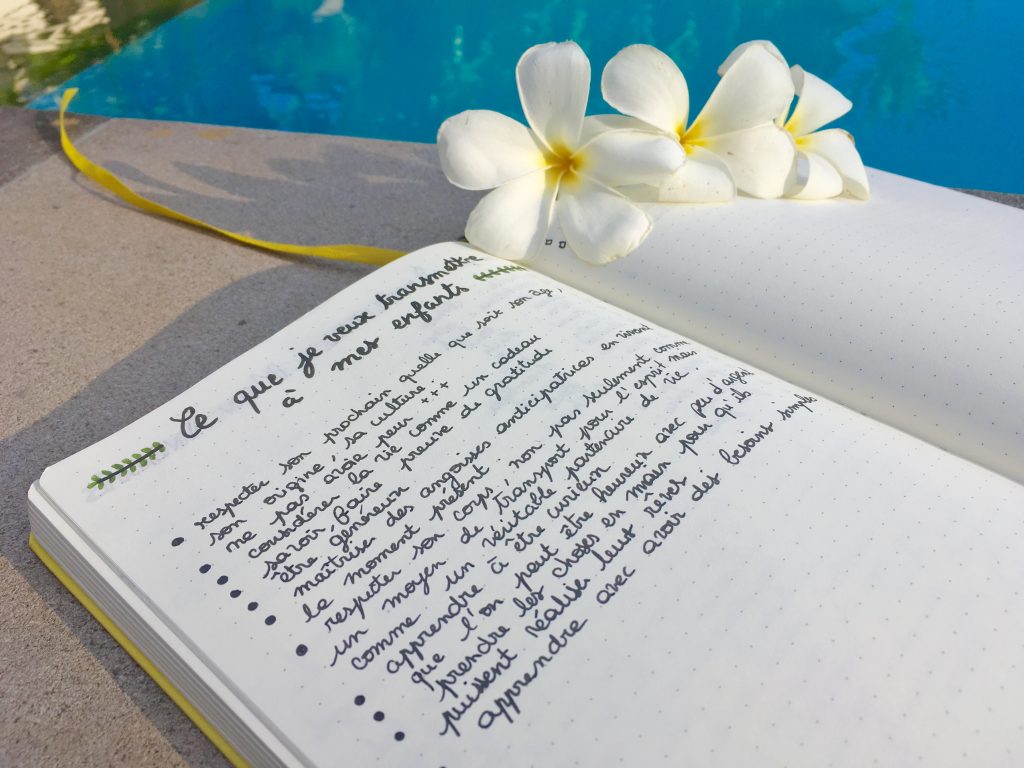 Ce que je veux transmettre
à mes enfants
• respecter son prochain quelle que soit son âge,
son origine, sa culture
• ne pas avoir peur ++
• considérer la vie comme un cadeau
• savoir faire preuve de gratitude
• être généreux
• maîtriser des angoisses anticipatrices en vivant
le moment présent
• respecter son corps, non pas seulement comme
un moyen de transport pour l'esprit mais
comme un véritable partenaire de vie
• apprendre à être curieux
• que l'on peut être heureux avec peu d'argent
• prendre les choses en main pour qu'ils
puissent réaliser leurs rêves
apprendre avec avoir des besoins simple